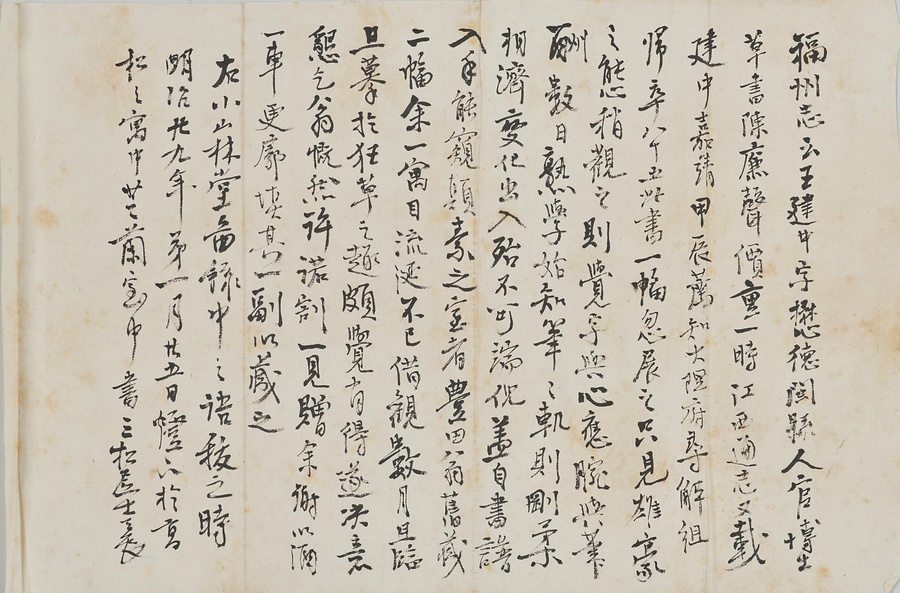 福州志云王建中字懋德閩縣人官博士
草書陳廉聲價重一時江西通志又載
建中嘉靖甲辰薦知大隠府尋解組
帰卒八十五此書一幅忽展之只見雄豪
之態稍観之則覺字與心應腕與筆
酬數日熟學始知筆之軌則剛柔
相濟変化出入殆不可端倪蓋自書譜
入手能窺顛素之室者豊田翁舊蔵
二幅余一寓目流涎不已借観數月且臨
且摹於狂草之趣頗覺有得遂决意
懇乞翁慨然許諾割一見贈余謝以酒
一車更廓填其一副以蔵之
右小山林堂畄録中之語抜之時
明治廿九年第一月廿五日燈下於
松之寓中蘭室中書